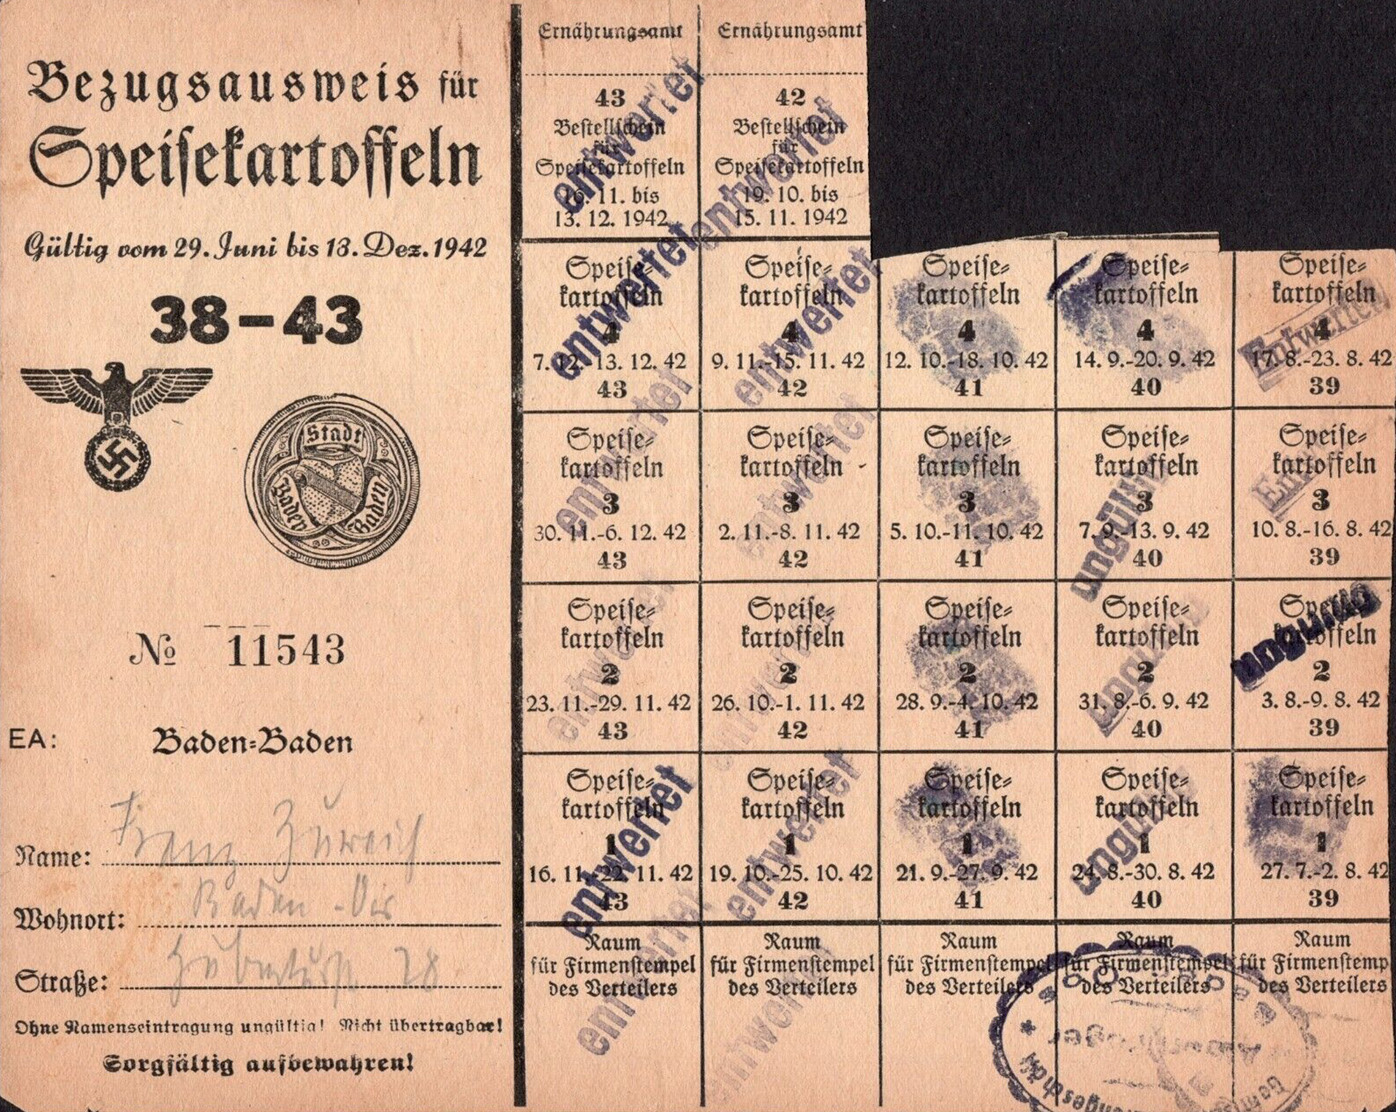 Bezugsausweis für
Speisekartoffeln
Gültig vom 29. Juni bis 13. Dez. 1942
38-43
Stadt
Baden
Baden
№ 11543
EA: Baden-Baden
Name: Franz Zureich
Wohnort: Baden-Os
Straße: 28
Ohne Namenseintragung ungültig! Nicht übertragbar!
Sorgfältig aufbewahren!
Ernährungsamt
43
Bestellschein
für
Speisekartoffeln
16. 11. bis
13. 12. 1942
entwertet
Ernährungsamt
42
Bestellschein
für
Speisekartoffeln
19. 10. bis
15. 11. 1942
entwertet
Speise-
kartoffeln
4
7. 12.-13. 12. 42
43
entwertet
Speise-
kartoffeln
4
9. 11.-15. 11. 42
42
entwertet
Speise-
kartoffeln
4
12. 10.-18. 10. 42
41
Speise-
kartoffeln
4
14. 9.-20. 9. 42
40
Speise-
kartoffeln
4
17. 8.-23. 8. 42
39
Entwertet
Speise-
kartoffeln
3
30. 11.-6. 12. 42
43
entwertet
Speise-
kartoffeln
3
2. 11.-8. 11. 42
42
entwertet
Speise-
kartoffeln
3
5. 10.-11. 10. 42
41
Speise-
kartoffeln
3
7. 9.-13. 9. 42
40
ungültig
Speise-
kartoffeln
3
10. 8.-16. 8. 42
39
Speise-
kartoffeln
2
23. 11.-29. 11. 42
43
entwertet
Speise-
kartoffeln
2
26. 10.-1. 11. 42
42
entwertet
Speise-
kartoffeln
2
28. 9.-4. 10. 42
41
Speise-
kartoffeln
2
31. 8.-6. 9. 42
40
ungültig
Speise-
kartoffeln
2
3. 8.-9. 8. 42
39
ungültig
Speise-
kartoffeln
1
16. 11.-22. 11. 42
43
entwertet
Speise-
kartoffeln
1
19. 10.-25. 10. 42
42
entwertet
Speise-
kartoffeln
1
21. 9.-27. 9. 42
41
Speise-
kartoffeln
1
24. 8.-30. 8. 42
40
ungültig
Speise-
kartoffeln
1
27. 7.-2. 8. 42
39
Raum
für Firmenstempel
des Verteilers
entwertet
Raum
für Firmenstempel
des Verteilers
entwertet
Raum
für Firmenstempel
des Verteilers
Raum
für Firmenstempel
des Verteilers
Raum
für Firmenstemp
des Verteilers